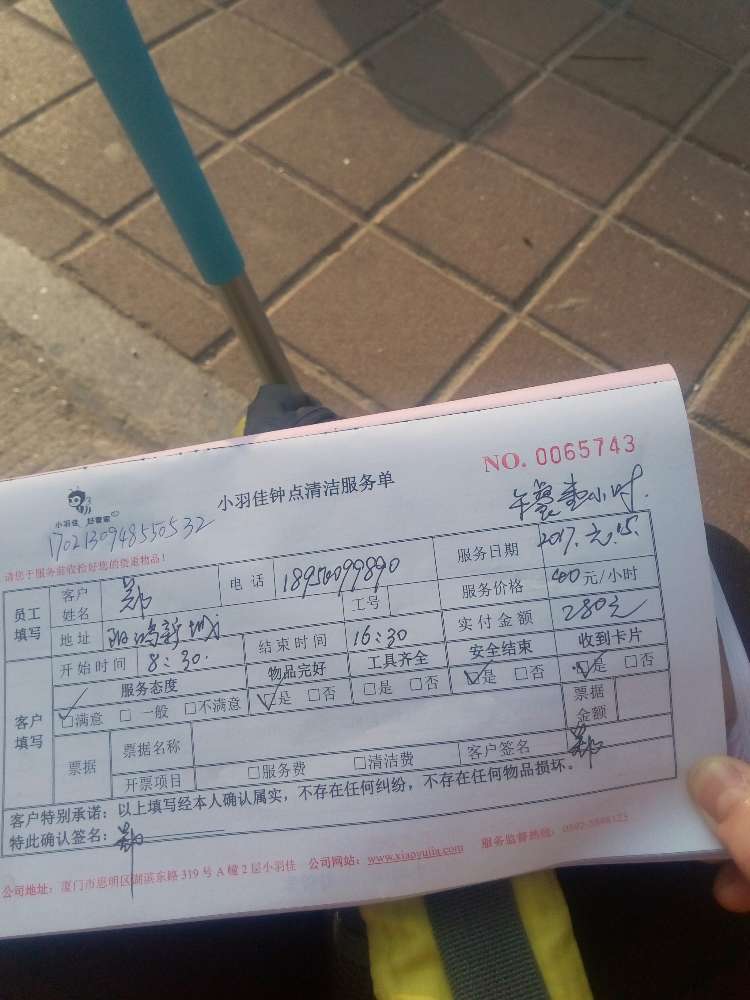 小羽佳钟点清洁服务单
NO. 0065743
小羽佳 好管家
1702130948550532
午餐壹小时.
请您于服务前收捡好您的贵重物品！
员工填写 客户姓名 郑 电话 服务日期 2017. 元.15.
地址 阳鸿新城 工号 服务价格 40元/小时
开始时间 8:30. 结束时间 16:30 实付金额 280元
客户填写 服务态度 物品完好 工具齐全 安全结束 收到卡片
☑满意 □一般 □不满意 ☑是 □否 □是 □否 ☑是 □否 ☑是 □否
票据 票据名称 票据金额
开票项目 □服务费 □清洁费 客户签名 郑
客户特别承诺：以上填写经本人确认属实，不存在任何纠纷，不存在任何物品损坏。
特此确认签名：郑
公司地址：厦门市思明区湖滨东路 319 号 A 幢 2 层小羽佳 公司网站：www.xiaoyujia.com 服务监督热线：